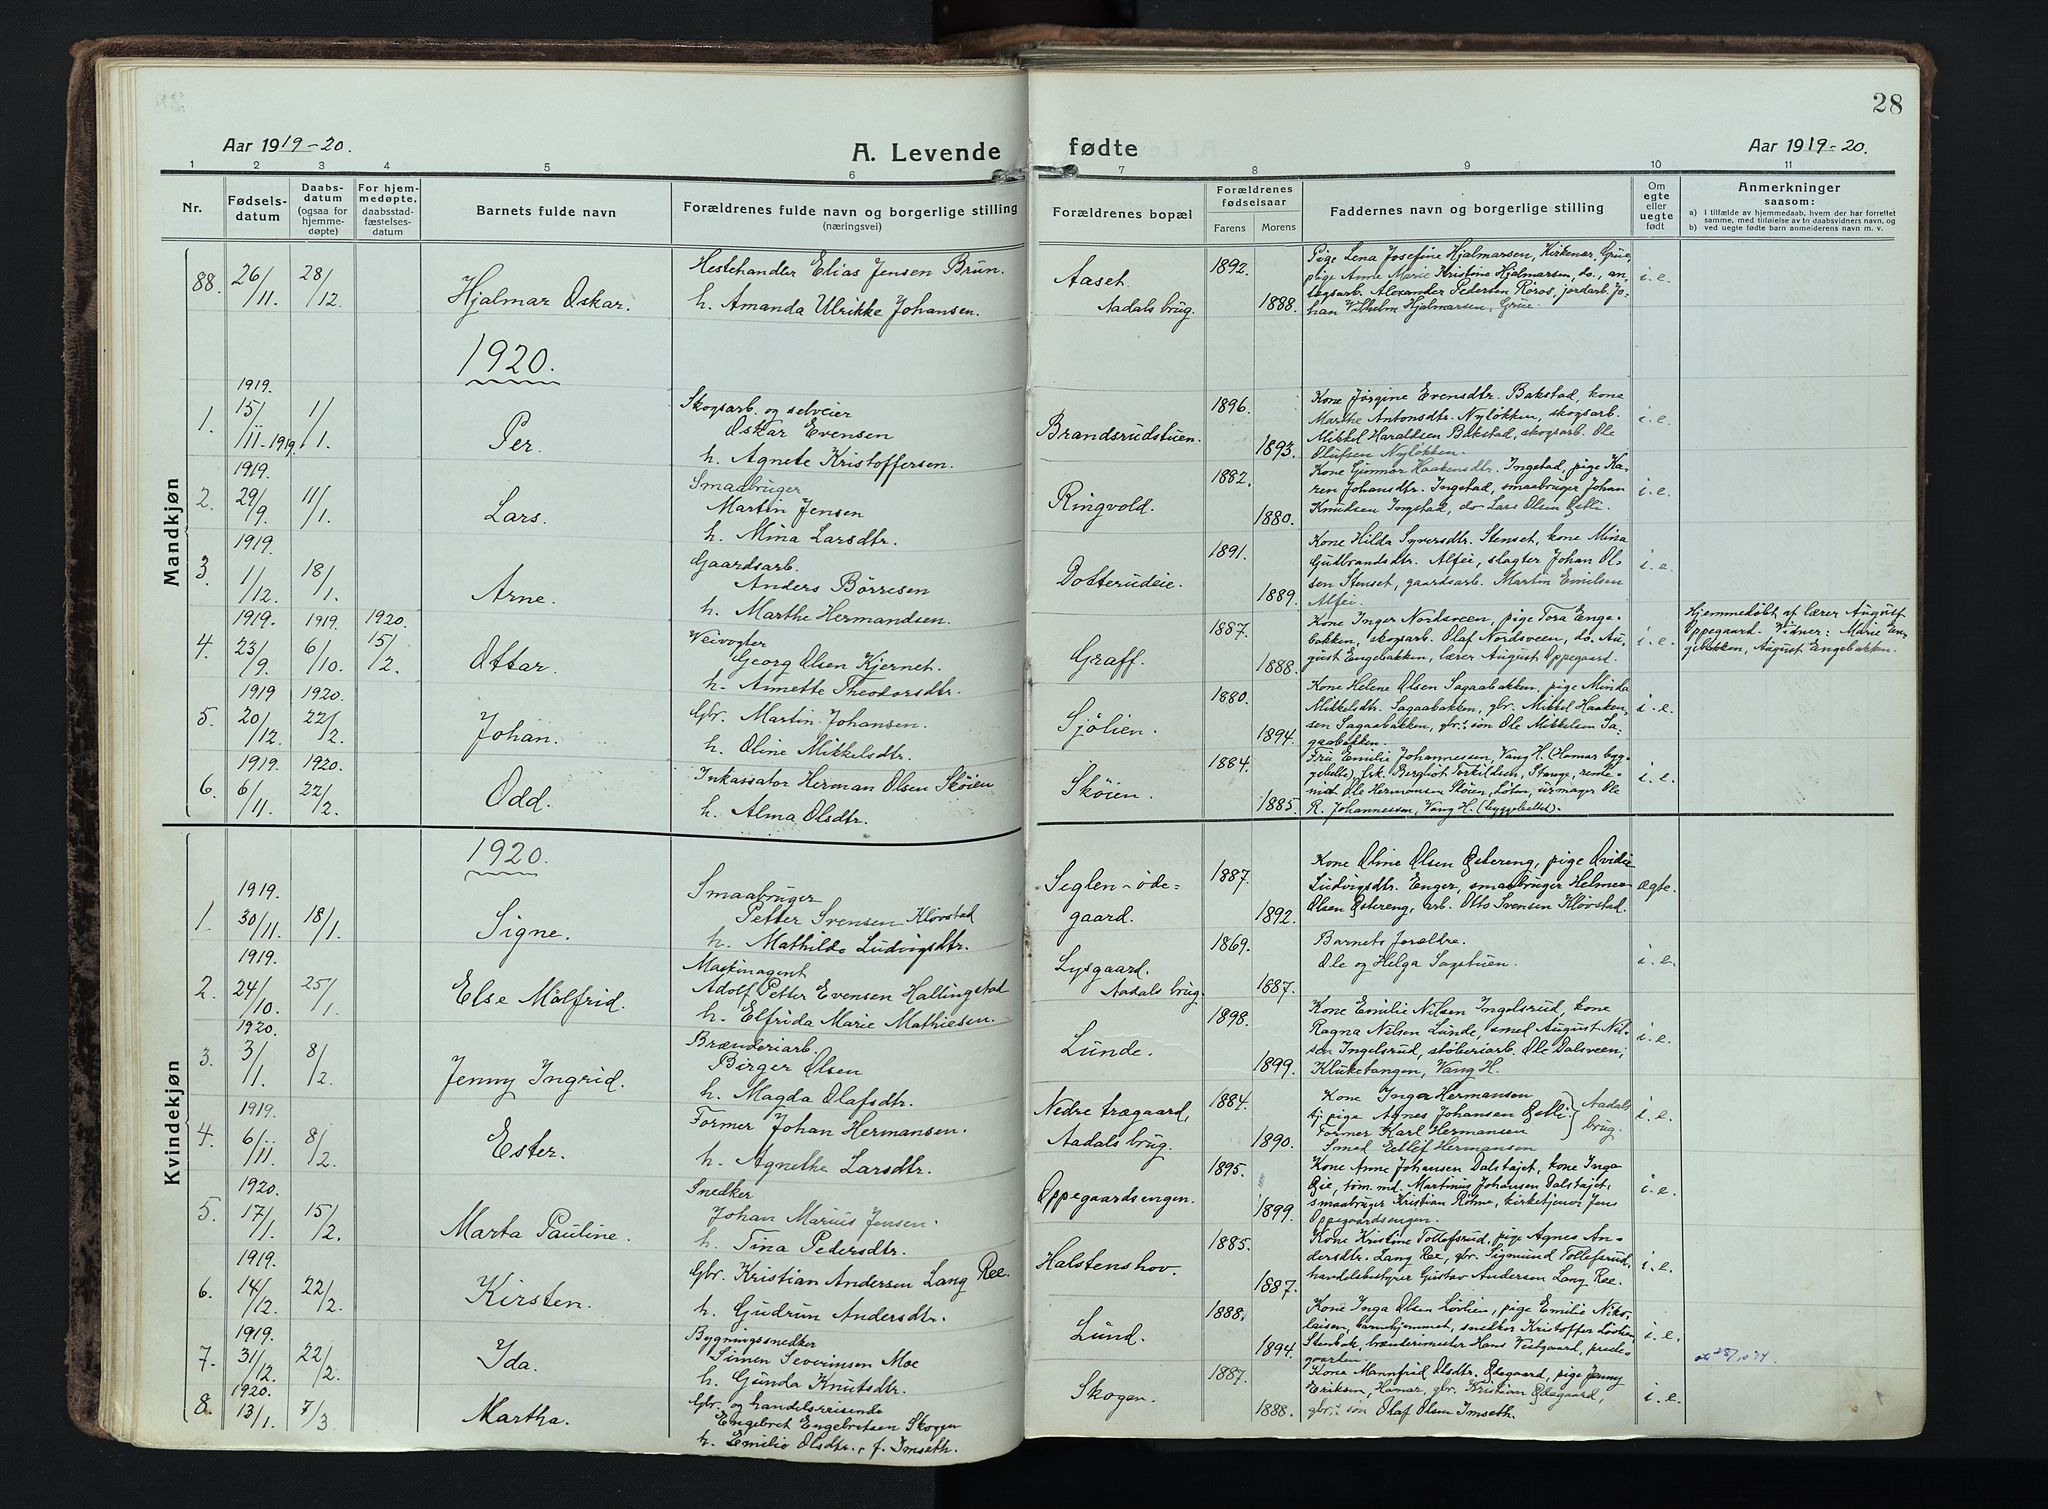 28
Aar 1919-20.
A. Levende
fødte
Aar 1919-20.
1 2 3 4 5 6 7 8 9 10 11
Nr.
Fødsels-
datum
Daabs-
datum
(ogsaa for
hjemme-
døpte)
For hjem-
medøpte,
daabsstad-
fæstelses-
datum
Barnets fulde navn
Forældrenes fulde navn og borgerlige stilling
(næringsvei)
Forældrenes bopæl
Forældrenes
fødselsaar
Farens
Morens
Faddernes navn og borgerlige stilling
Om
egte
eller
uegte
født
Anmerkninger
saasom:
a) i tilfælde av hjemmedaab, hvem der har forrettet
samme, med tilføielse av to daabsvidners navn, og
b) ved uegte fødte barn anmelderens navn m. v.
Mandkjøn
88. 26/11. 28/12. Hjalmar Oskar.
Hestehandler Elias Jensen Brun.
h. Amanda Ulrikke Johansen.
Aaset.
Aadals brug.
1892. 1888.
Pige Lena Josefine Hjalmarsen, Kirkenær, Grue,
pige Anne Marie Kristine Hjalmarsen, do., an-
legsarb. Alexander Pedersen Röros, jordarb. Jo-
han Vilhelm Hjalmarsen, Grue
i.e.
1920.
1. 1919. 15/11-1919. 1/1. Per.
Skogsarb. og selveier
Oskar Evensen
h. Agnete Kristoffersen.
Brandsrudstuen.
1896. 1893.
Kone Jørgine Evensdtr. Bakstad, kone
Marthe Antonsdtr. Nyløkken, skogsarb.
Mikkel Haraldsen Bakstad, skogsarb. Ole
Olufsen Nyløkken.
i.e.
2. 1919. 29/9. 11/1. Lars.
Smaabruger
Martin Jensen
h. Mina Larsdtr.
Ringvold.
1882. 1880.
Kone Gunnar Haakensdtr. Ingstad, pige Ka-
ren Johansdtr. Ingstad, smaabruger Johan
Knudsen Ingstad, do Lars Olsen Østli.
i.e.
3. 1919. 1/12. 18/1. Arne.
Gaardsarb.
Anders Börresen
h. Marthe Hermandsen.
Dotterudeie.
1891. 1889.
Kone Hilda Syversdtr. Stenset, kone Mina
Gudbrandsdtr. Alfei, slagter Johan Ol-
sen Stenset, gaardsarb. Martin Emilsen
Alfei.
i.e.
4. 1919. 23/9. 1919. 6/10. 1920. 15/2. Ottar.
Veivogter
Georg Olsen Kjernet.
h. Annette Theodorsdtr.
Graff.
1887. 1888.
Kone Inger Nordsveen, pige Tora Enge-
bakken, skogsarb. Olaf Nordsveen, do. Au-
gust Engebakken, lærer August Oppegaard.
i.e.
Hjemmedøbt af lærer August
Oppegaard. Vidner: Marie En-
gebakken, August Engebakken.
5. 1919 20/12. 1920. 22/2. Johan.
Gbr. Martin Johansen.
h. Oline Mikkelsdtr.
Sjølien.
1880. 1894.
Kone Helene Olsen Sagaabakken, pige Minda
Mikkelsdtr. Sagaabakken, gbr. Mikkel Haaken-
sen Sagaabakken, gbr.s søn Ole Mikkelsen Sa-
gaabakken.
i.e.
6. 1919. 6/11. 1920. 22/2. Odd.
Inkassator Herman Olsen Skøien
h. Alma Olsdtr.
Skøien.
1884. 1885.
Fru Emilie Johannessen, Vang H. (Hamar byg-
gebelte), frk. Bergliot Torkildsen, Stange, rente-
nist Ole Hermansen Skøien, Løten, urmager Ole
R. Johannessen, Vang H. (byggebeltet).
i.e.
Kvindekjøn
1920.
1. 1919. 30/11. 18/1. Signe.
Smaabruger
Petter Svensen Kløvstad
h. Mathilde Ludvigsdtr.
Seglen-øde-
gaard.
1887. 1892.
Kone Oline Olsen Østereng, pige Ovidie
Ludvigsdtr. Enger, smaabruger Helmer
Olsen Østereng, arb. Otto Svensen Kløvstad.
ægte.
2. 1919. 24/10. 25/1. Else Målfrid.
Maskinagent
Adolf Petter Evensen Hallingstad
h. Elfrida Marie Mathiesen.
Lysgaard.
Aadals brug.
1869. 1887.
Barnets forældre.
Ole og Helga Sagstuen.
i.e.
3. 1920. 3/1. 8/2. Jenny Ingrid.
Brænderiarb.
Birger Olsen
h. Magda Olafsdtr.
Lunde.
1898. 1899.
Kone Emilie Nilsen Ingelsrud, kone
Ragna Nilsen Lunde, smed August Nil-
sen Ingelsrud, støberiarb. Ole Dalsveen,
Kluketangen, Vang H.
i.e.
4. 1919. 6/11. 8/2. Ester.
Former Johan Hermansen.
h. Agnethe Larsdtr.
Nedre trægaard,
Aadals brug.
1884. 1890.
Kone Inga Hermansen
tj. pige Agnes Johansen Østli
Former Karl Hermansen
Smed Eilif Hermansen
Aadals
brug.
i.e.
5. 1920. 17/1. 15/2. Marta Pauline.
Snedker
Johan Marius Jensen.
h. Tina Pedersdtr.
Oppegaardsengen.
1895. 1899.
Kone Anne Johansen Dalstøjet, kone Inga
Øie, tøm.md. Martinus Johansen Dalstøjet,
smaabruger Kristian Röhne, kirketjener Jens
Oppegaardsengen.
i.e.
6. 1919. 14/12. 22/2. Kirsten.
Gbr. Kristian Andersen Lang Ree.
h. Gudrun Andersdtr.
Halstenshov.
1885. 1887.
Kone Kristine Tollefsrud, pige Agnes An-
dersdtr. Lang Ree, gbr. Sigmund Tollefsrud,
handelsbestyrer Gustav Andersen Lang Ree.
i.e.
7. 1919. 31/12. 22/2. Ida.
Bygningssnedker
Simen Severinsen Moe
h. Gunda Knutsdtr.
Lund.
1888. 1894.
Kone Inga Olsen Løvlien, pige Emilie Niko-
laisen, barnehjemmet, snedker Kristoffer Løvlien
Stenbæk, brænderimester Hans Vestgaard, preste-
gaarden.
i.e.
8. 1920. 13/1. 7/3. Martha.
Gbr. og handelsreisende
Engebret Engebretsen Skogen
h. Emilie Olsdtr., f. Imseth.
Skogen.
1887. 1888.
Kone Mannfrid Olsdtr. Ødegaard, pige Jenny
Eriksen, Hamar, gbr. Kristian Ødegaard,
gbr.s søn Olaf Olsen Imseth.
i.e.